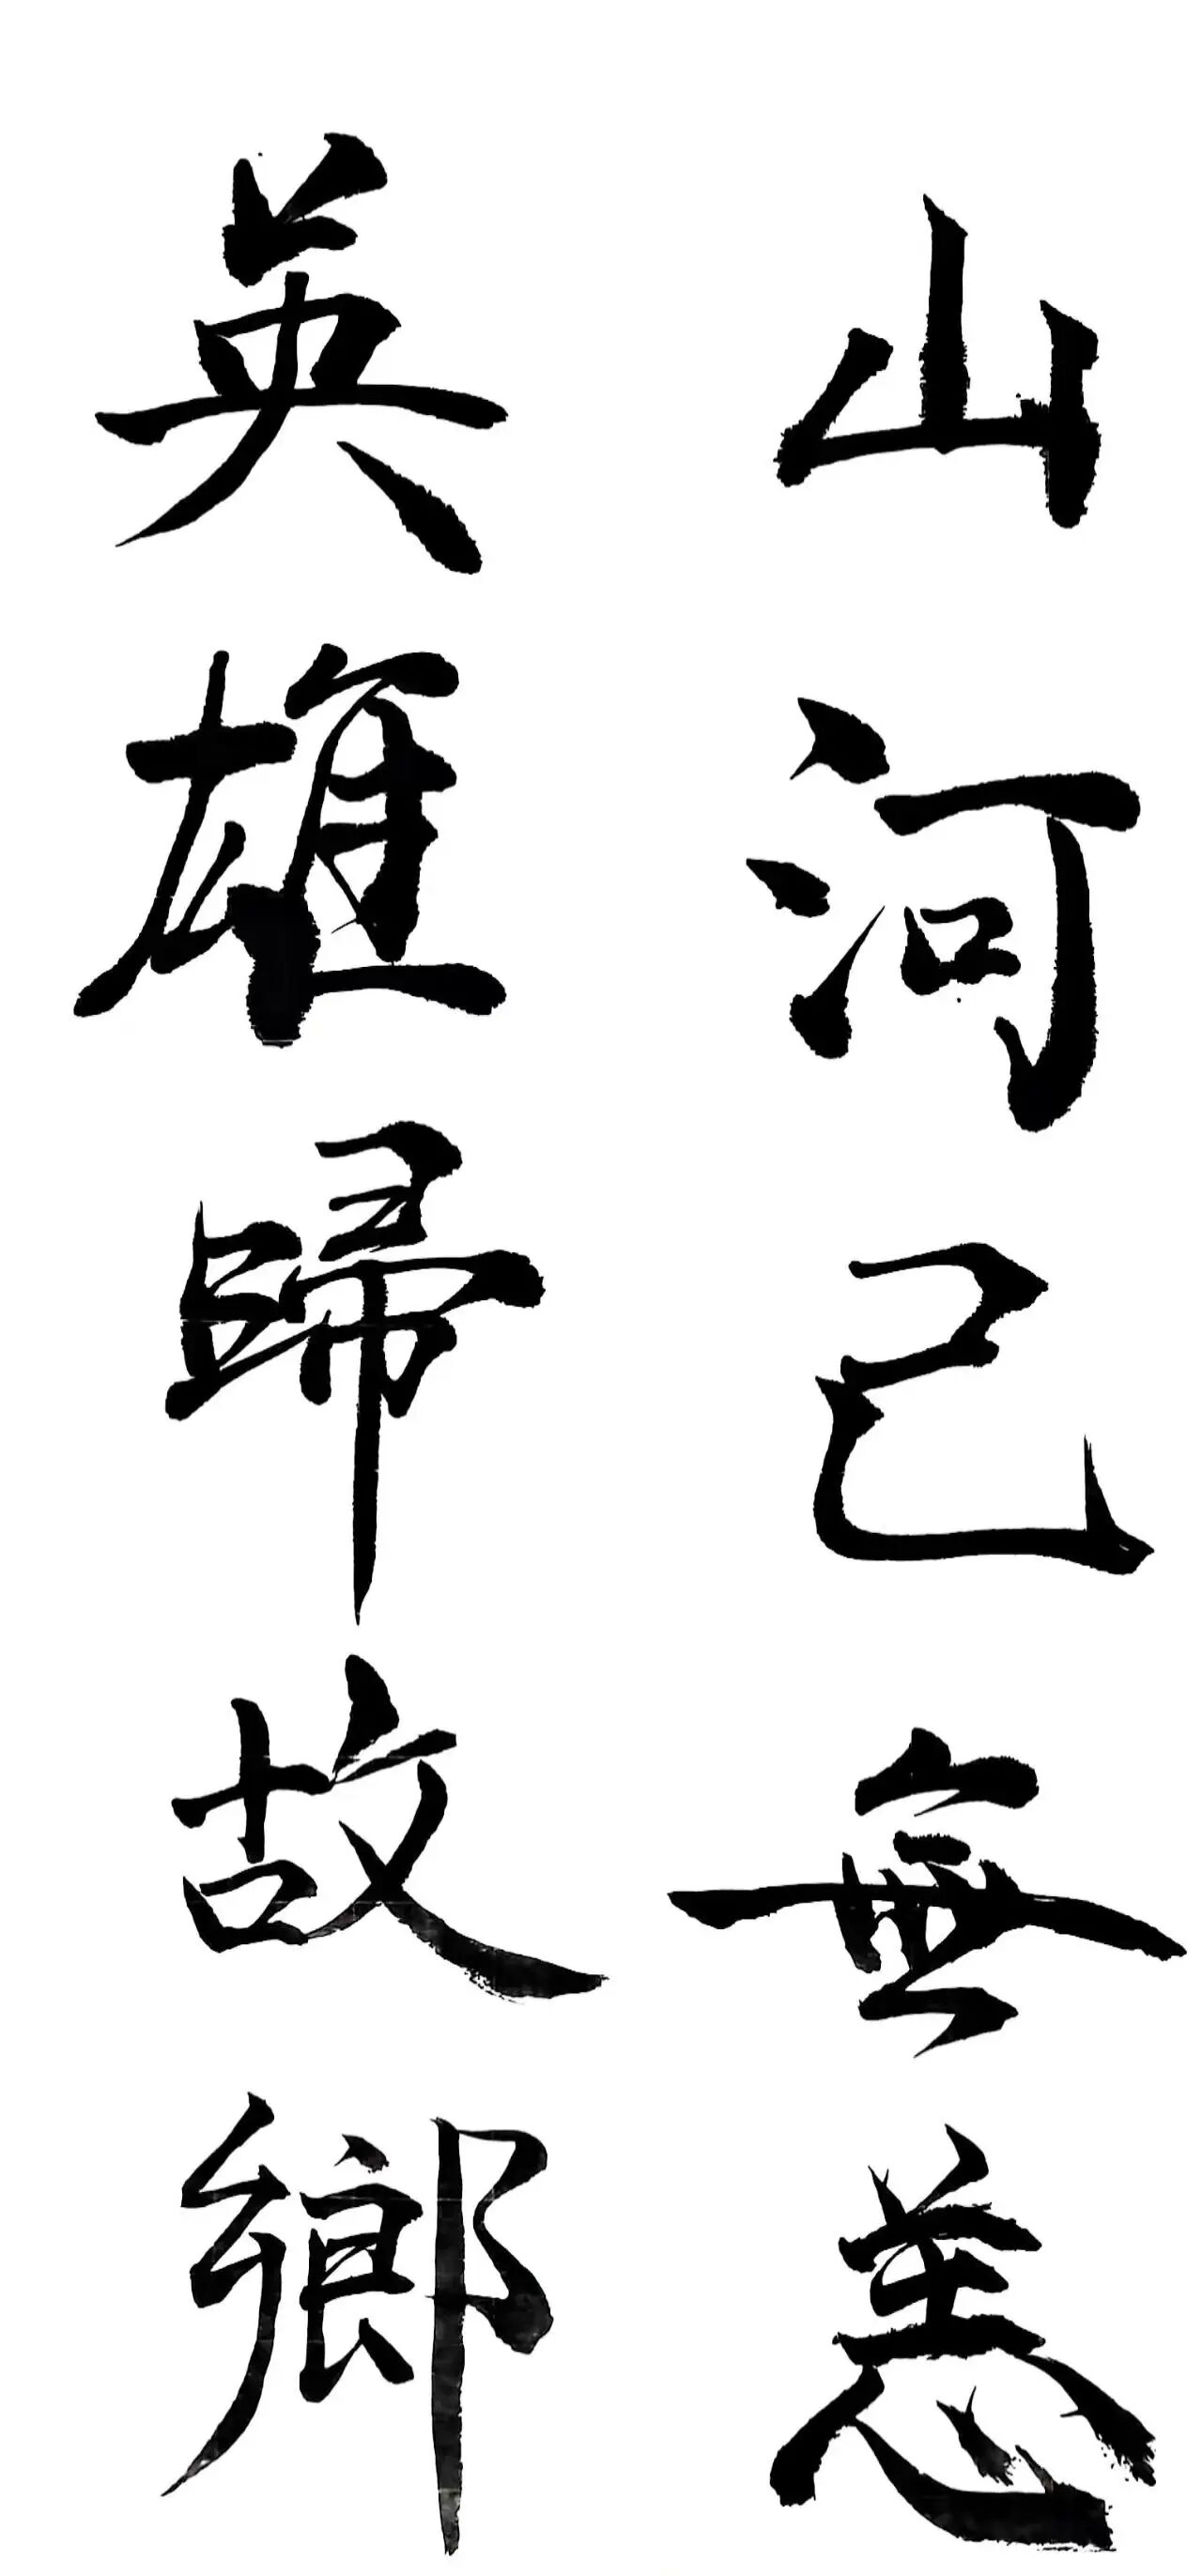 山河已無恙
英雄歸故鄉